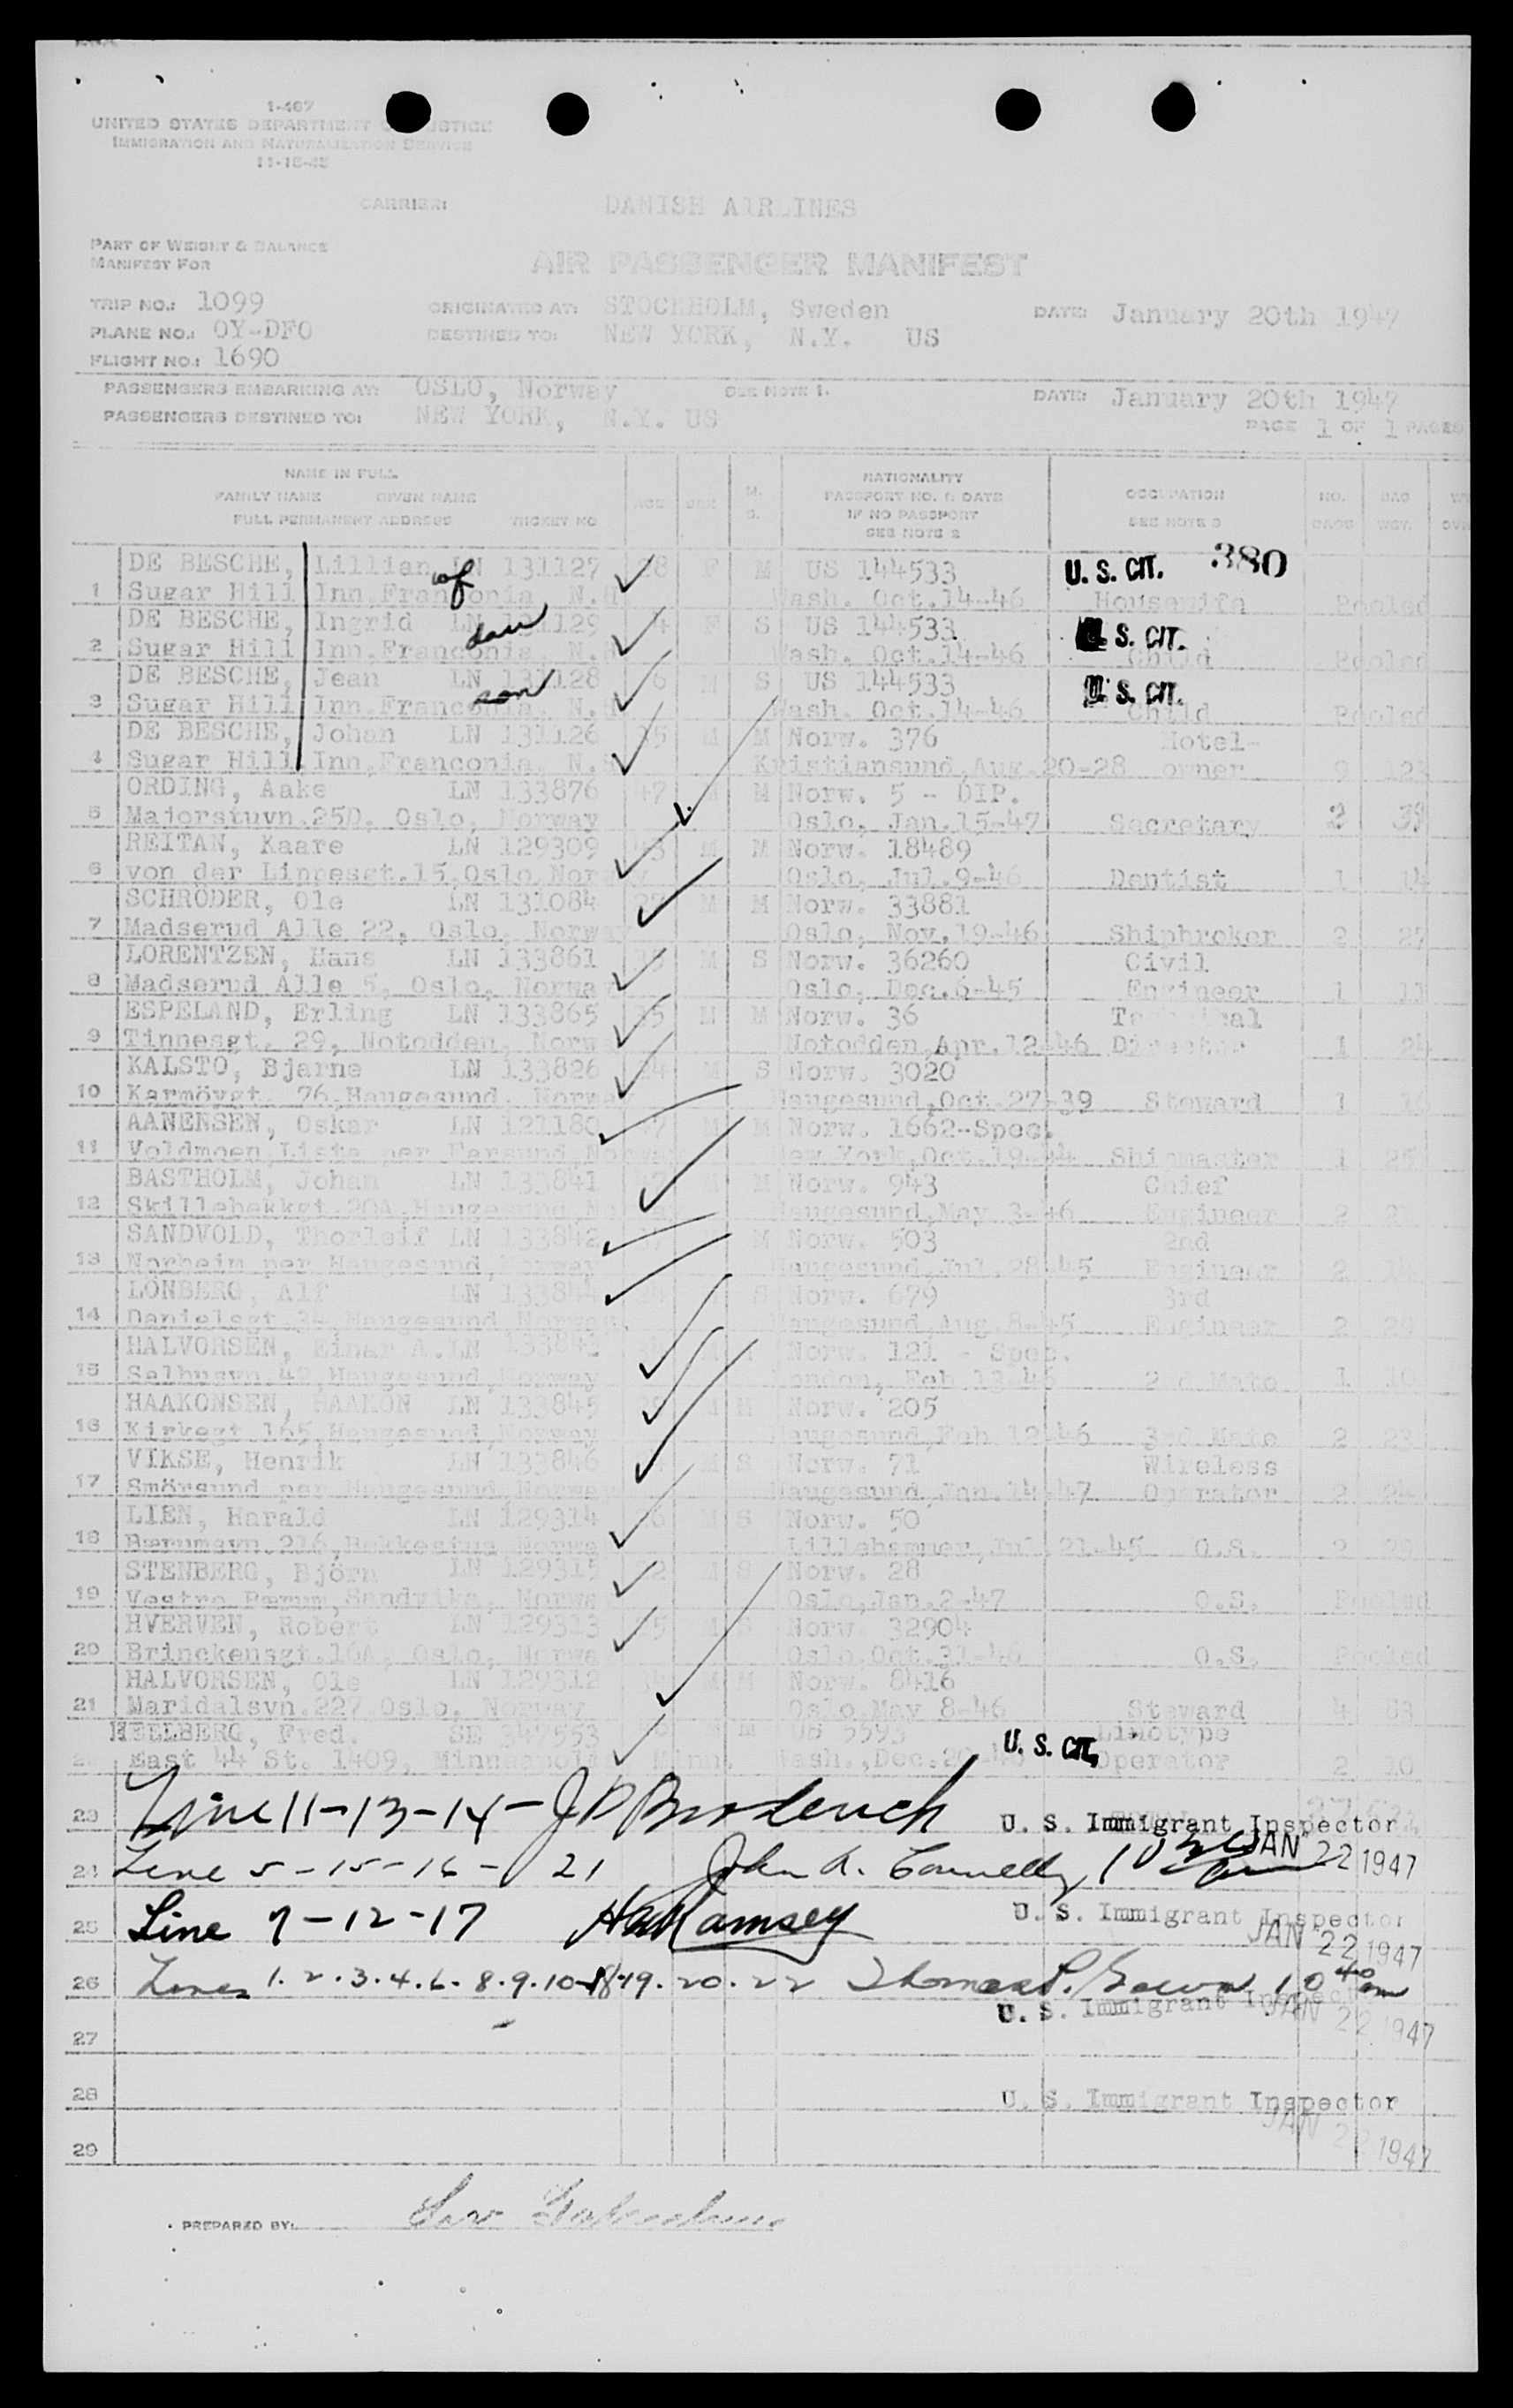 1-467
UNITED STATES DEPARTMENT OF JUSTICE
IMMIGRATION AND NATURALIZATION SERVICE
11-15-45
CARRIER: DANISH AIRLINES
PART OF WEIGHT & BALANCE
MANIFEST FOR
AIR PASSENGER MANIFEST
TRIP NO.: 1099 ORIGINATED AT: STOCKHOLM, Sweden DATE: January 20th 1947
PLANE NO.: OY-DFO DESTINED TO: NEW YORK, N.Y. US
FLIGHT NO.: 1690
PASSENGERS EMBARKING AT: OSLO, Norway SEE NOTE 1. DATE: January 20th 1947
PASSENGERS DESTINED TO: NEW YORK, N.Y. US
PAGE 1 OF 1 PAGES
NAME IN FULL
FAMILY NAME GIVEN NAME
FULL PERMANENT ADDRESS TICKET NO
AGE SEX M. S.
NATIONALITY
PASSPORT NO. & DATE
IF NO PASSPORT
SEE NOTE 2
OCCUPATION
SEE NOTE 3
NO. BAGS BAG WGT.
DE BESCHE, Lillian wf LN 131127 28 F M US 144533 U. S. CIT. 380
1 Sugar Hill Inn, Franconia, N.H Wash. Oct.14-46 Housewife Pooled
DE BESCHE, Ingrid dau LN 131129 4 F S US 144533 U. S. CIT.
2 Sugar Hill Inn, Franconia, N.H Wash. Oct.14-46 Child Pooled
DE BESCHE, Jean son LN 131128 6 M S US 144533 U. S. CIT.
3 Sugar Hill Inn, Franconia, N.H Wash. Oct.14-46 Child Pooled
DE BESCHE, Johan LN 131126 M M Norw. 376 Hotel-
4 Sugar Hill Inn, Franconia, N.H Kristiansund, Aug.20-28 owner 9
ORDING, Aake LN 133876 47 M M Norw. 5 - DIP.
5 Majorstuvn.25D, Oslo, Norway Oslo, Jan.15-47 Secretary 2
REITAN, Kaare LN 129309 M M Norw. 18489
6 von der Lippesgt.15, Oslo, Norway Oslo, Jul.9-46 Dentist 1 14
SCHRÖDER, Ole LN 131084 27 M M Norw. 33881
7 Madserud Alle 22, Oslo, Norway Oslo, Nov.19-46 Shipbroker 2 27
LORENTZEN, Hans LN 133861 M S Norw. 36260 Civil
8 Madserud Alle 5, Oslo, Norway Oslo, Dec.6-45 Engineer 1 11
ESPELAND, Erling LN 133865 M M Norw. 36 Technical
9 Tinnesgt. 29, Notodden, Norway Notodden, Apr.12-46 Director 1 24
KALSTO, Bjarne LN 133826 24 M S Norw. 3020
10 Karmöygt. 76, Haugesund, Norway Haugesund, Oct.27-39 Steward 1 16
AANENSEN, Oskar LN 121180 M M Norw. 1662-Spec.
11 Voldmoen, Lista per Farsund, Norway New York, Oct.19-44 Shipmaster 1 25
BASTHOLM, Johan LN 133841 M M Norw. 943 Chief
12 Skillebekkgt.20A, Haugesund, Norway Haugesund, May 3-46 Engineer 2
SANDVOLD, Thorleif LN 133842 M Norw. 503 2nd
13 Norheim per Haugesund, Norway Haugesund, Jul.28-45 Engineer 2
LÖNBERG, Alf LN 133844 S Norw. 679 3rd
14 Danielsgt. Haugesund, Norway Haugesund, Aug.8-45 Engineer 2
HALVORSEN, Einar A. LN 133843 Norw. 121 - Spec.
15 Salhusvn.42, Haugesund, Norway London, Feb.13-46 2nd Mate 1
HAAKONSEN, HAAKON LN 133845 M M Norw. 205
16 Kirkegt.165, Haugesund, Norway Haugesund, Feb 12-46 3rd Mate 2 23
VIKSE, Henrik LN 133846 M S Norw. 71 Wireless
17 Smörsund per Haugesund, Norway Haugesund, Jan.14-47 Operator 2 24
LIEN, Harald LN 129314 M S Norw. 50
18 Bærumsvn.216, Bekkestua, Norway Lillehammer, Jul.21-45 O.S. 2
STENBERG, Björn LN 129315 22 M S Norw. 28
19 Vestre Bærum, Sandvika, Norway Oslo, Jan.2-47 O.S. Pooled
HVERVEN, Robert LN 129313 M S Norw. 32904
20 Brinckensgt.16A, Oslo, Norway Oslo Oct.31-46 O.S. Pooled
HALVORSEN, Ole LN 129312 M M Norw. 8416
21 Maridalsvn.227 Oslo, Norway Oslo, May 8-46 Steward 4 83
HELBERG, Fred. M US 5593 U. S. CIT. Linotype
East 44 St. 1409, Minneapolis Minn. Wash., Dec.20-46 Operator 2 10
23 Line 11-13-14 - J P Broderick U. S. Immigrant Inspector
24 Line 5-15-16- 21 John A. Connelly JAN 22 1947
25 Line 7-12-17 Ramsey U. S. Immigrant Inspector
JAN 22 1947
26 Lines 1.2.3.4.6.8.9.10-18-19.20.22 Thomas P. 10 40 am
U. S. Immigrant Inspector
JAN 22 1947
27
28 U. S. Immigrant Inspector
JAN 22 1947
29
PREPARED BY: